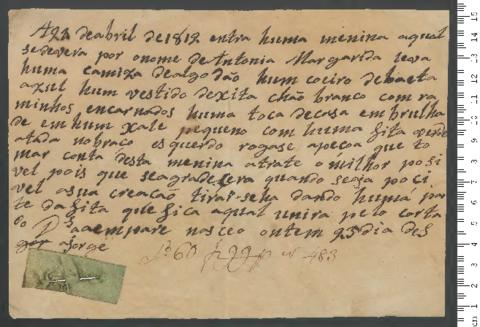 A 24 de abril de 1812 entra huma menina aqual
sedevera por onome de Antonia Margarida leva
huma camiza dealgodão hum coeiro debaeta
azul hum vestido dexita chão branco com ra
minhos encarnados huma toca decasa embrulha
de em hum xale pequeno com huma fita verde
atada nobraço esquerdo rogase apecoa que to
mar conta desta menina atrate omilhor posi
vel pois que seagradesera quando seja poci
vel asua creacão tirar-seha dando humá par
te dafita que fica aqual unira pelo corta
do Ds aempare nasceo ontem 23 dia deS
Jorge
483
15
14
13
12
11
10
9
8
7
6
5
4
3
2
1
cm